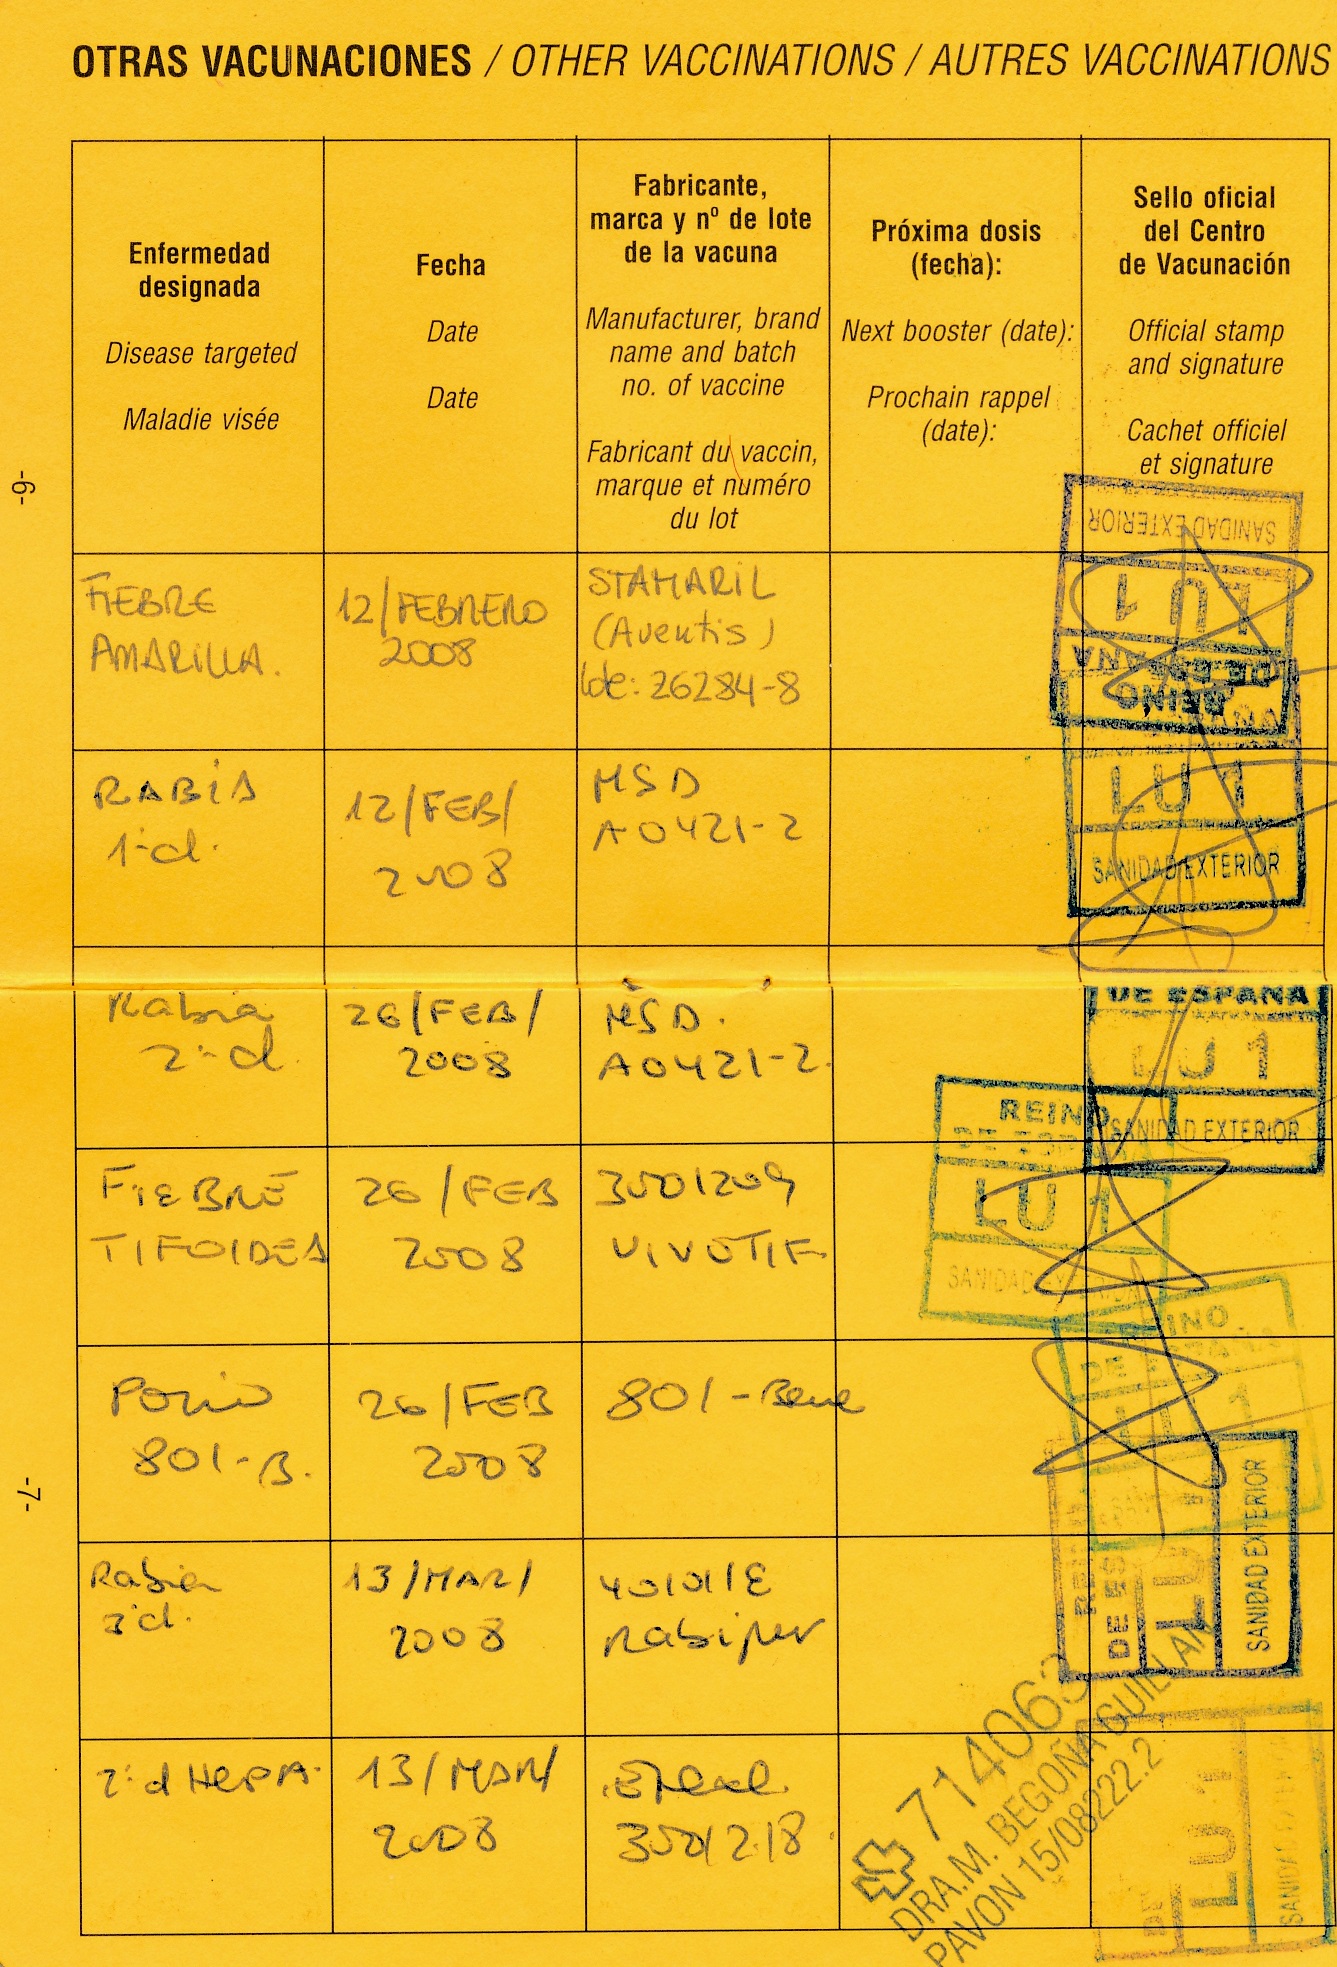 OTRAS VACUNACIONES / OTHER VACCINATIONS / AUTRES VACCINATIONS
Enfermedad
designada
Disease targeted
Maladie visée
Fecha
Date
Date
Fabricante,
marca y nº de lote
de la vacuna
Manufacturer, brand
name and batch
no. of vaccine
Fabricant du vaccin,
marque et numéro
du lot
Próxima dosis
(fecha):
Next booster (date):
Prochain rappel
(date):
Sello oficial
del Centro
de Vacunación
Official stamp
and signature
Cachet officiel
et signature
-6-
FIEBRE
AMARILLA.
12/FEBRERO
2008
STAMARIL
(Aventis)
lote: 26284-8
SANIDAD EXTERIOR
LU 1
DE ESPAÑA
REINO
RABIA
1ª d.
12/FEB/
2008
MSD
A0421-2
LU 1
SANIDAD EXTERIOR
Rabia
2ª d.
26/FEB/
2008
MSD.
A0421-2.
DE ESPAÑA
LU 1
SANIDAD EXTERIOR
FIEBRE
TIFOIDEA
26/FEB
2008
3001209
VIVOTIF
REINO
DE ESPAÑA
LU 1
SANIDAD EXTERIOR
-7-
POLIO
801-B.
26/FEB
2008
801-Bene
REINO
DE ESPAÑA
LU 1
Rabia
3ª d.
13/MAR/
2008
401011E
Rabipur
DE ES
LU
SANIDAD EXTERIOR
2ª d HEPA.
13/MAR/
2008
Epaxal
3001218.
714063
DRA.M. BEGOÑA GUILLAN
PAVON 15/08222.2
DE
LU 1
SANIDAD